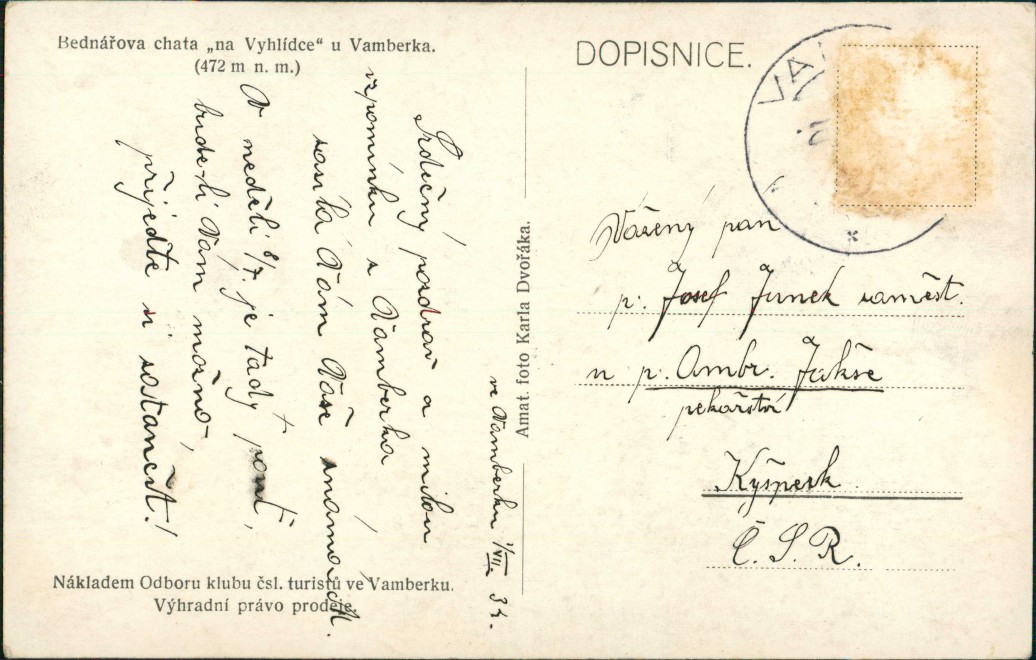 Bednářova chata „na Vyhlídce“ u Vamberka.
(472 m n. m.)
Srdečný pozdrav a milou
vzpomínku z Vamberka
zasílá Vám Váše známá
V neděli 8/7. je tady pouť,
bude-li Vám možno,
přijeďte si zatančit!
ve Vamberku 1/VII 34.
Amat. foto Karla Dvořáka.
Nákladem Odboru klubu čsl. turistů ve Vamberku.
Výhradní právo prodeje.
DOPISNICE.
VA
Vážený pan
p. Josef Junek zaměst.
u p. Ambr. Jakše
pekařství
Kyšperk
Č. S. R.